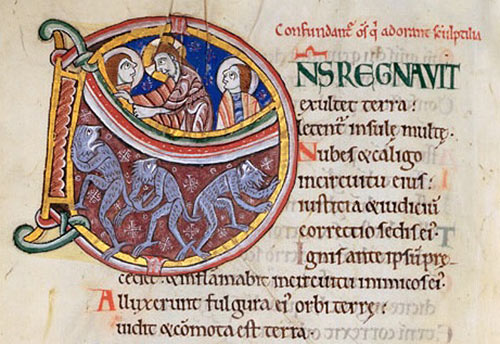 Confundant̄ oſ̄ q̄ adorant sculptilia
DNS REGNAVIT
exultet terra:
letent̄ insule multę.
Nubes & caligo
in circuitu eius:
iusticia & iudiciū
correctio sedis ei'.
Ignis ante ipsum pre
cedet. & inflammabit in circuitu inimicos ei'.
Alluxerunt fulgura ei' orbi terrę:
uidit & cōmota est terra.